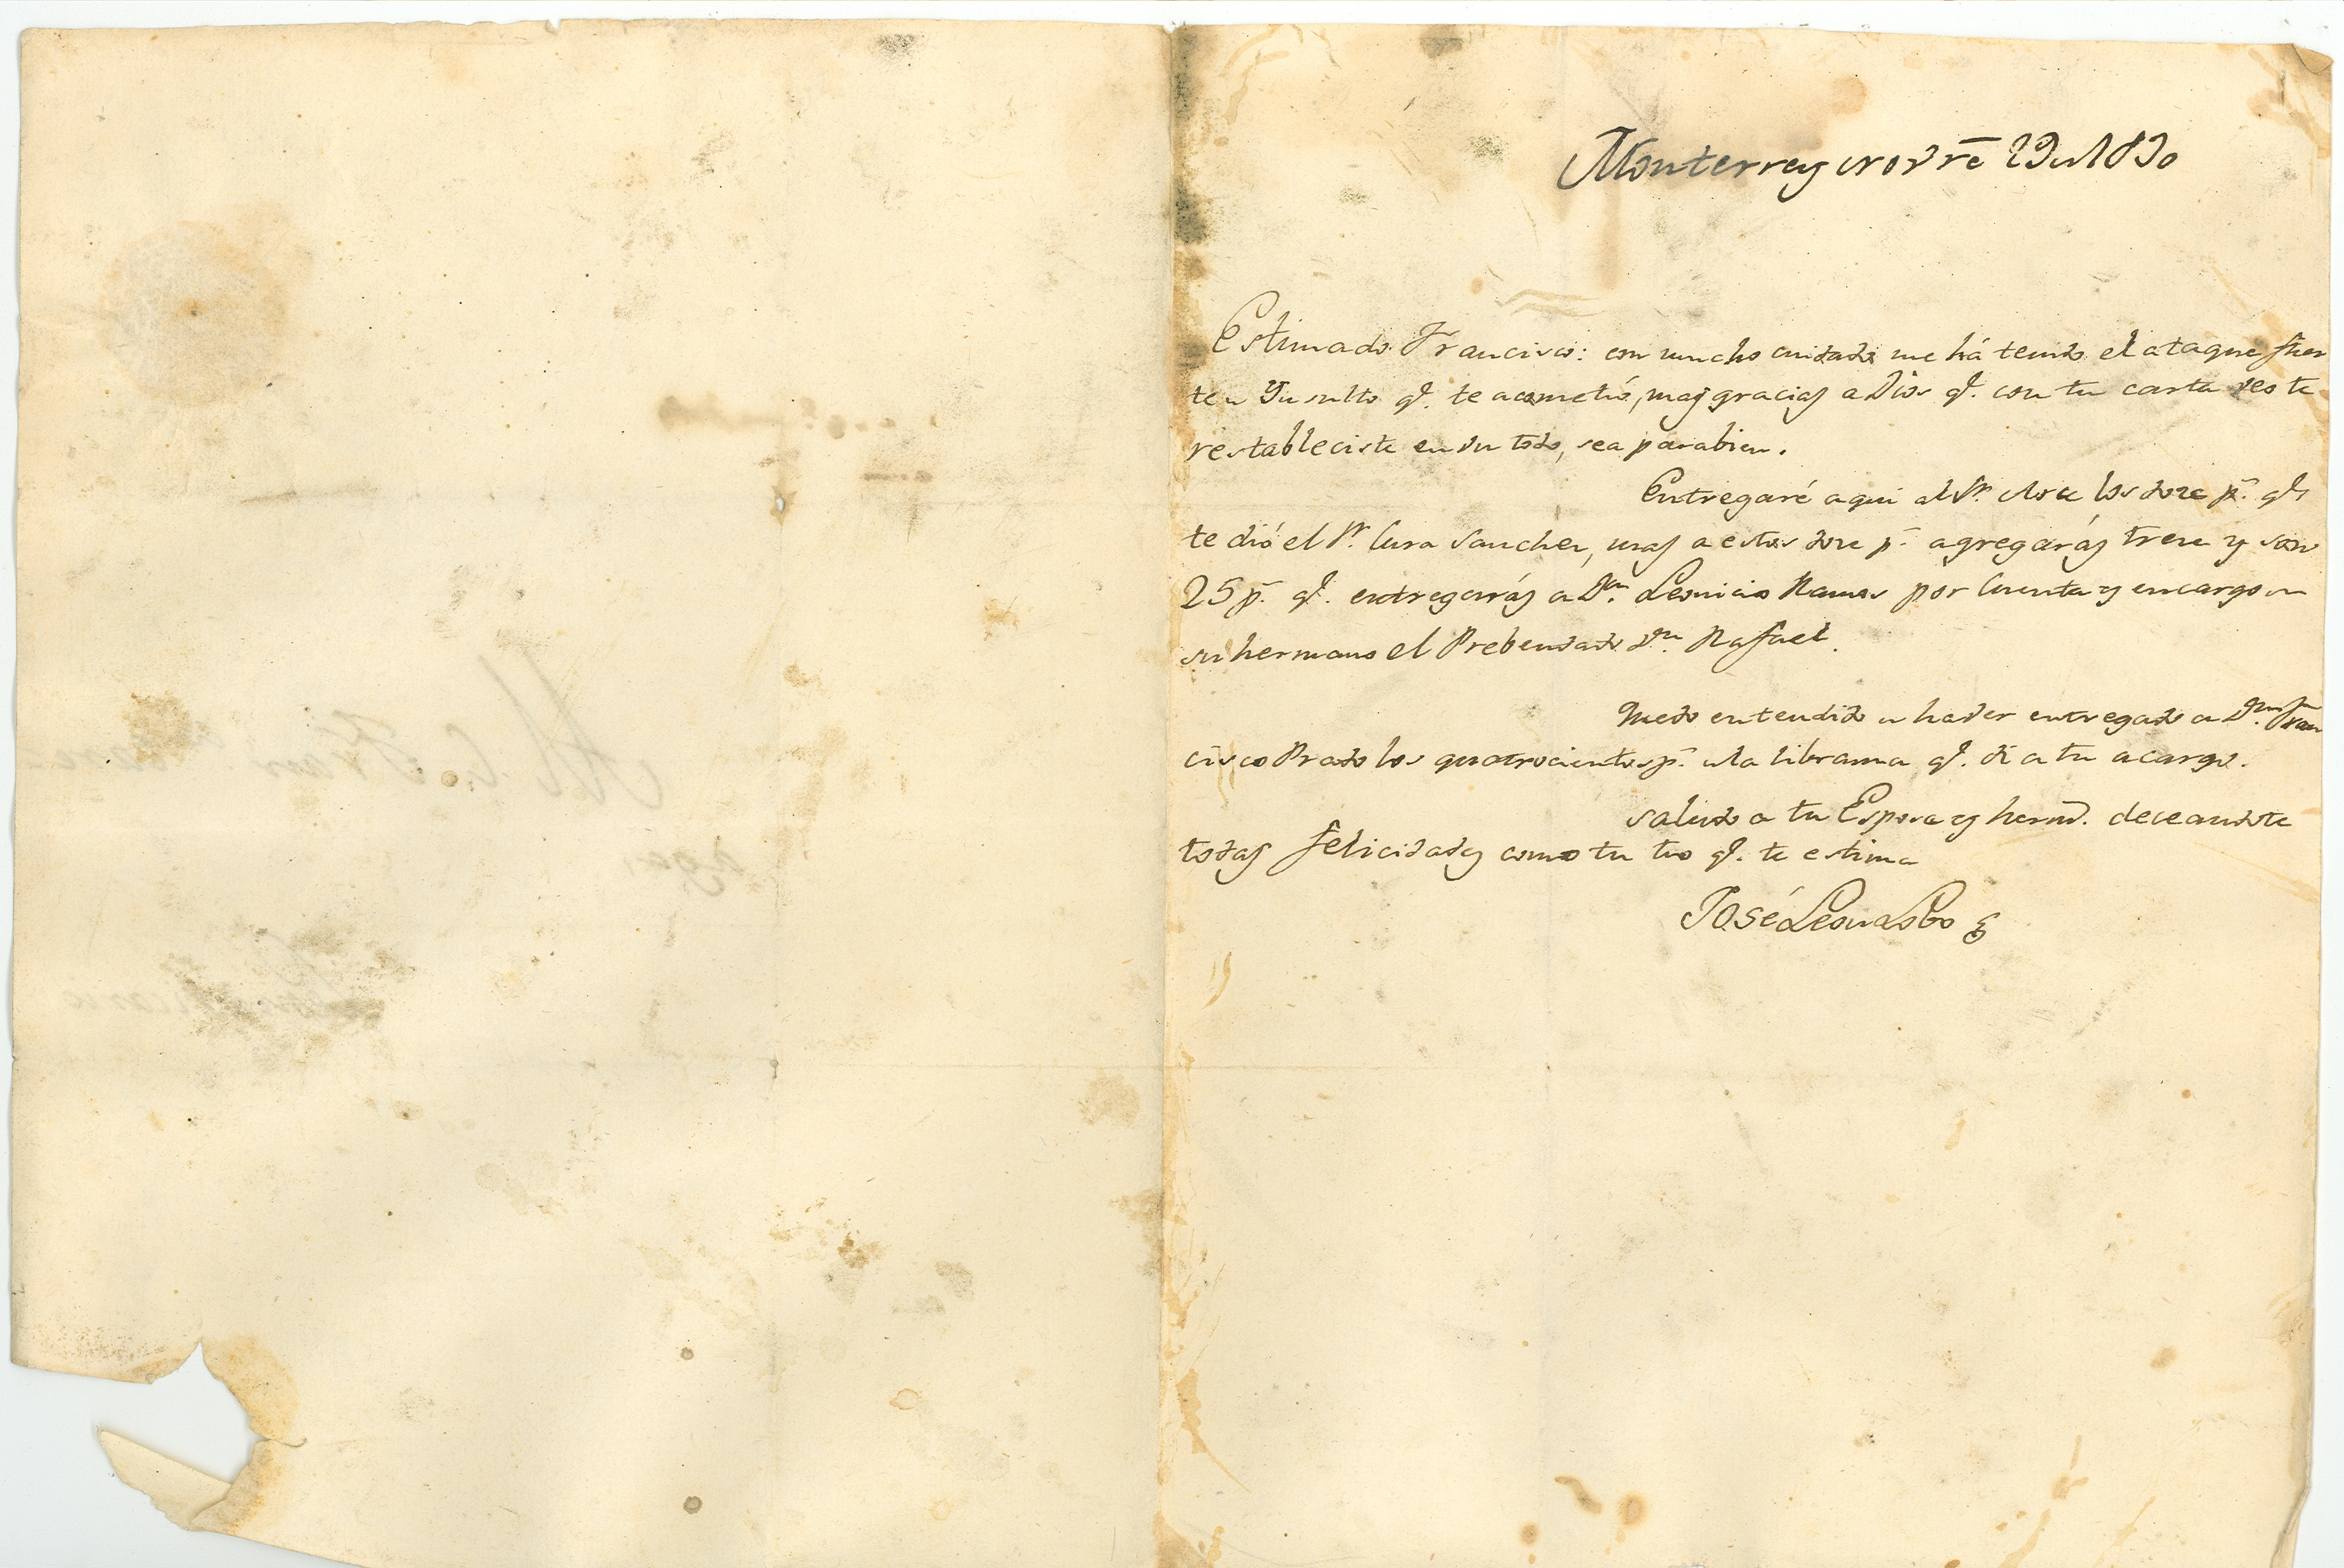 Monterrey Novre 29 de 1830
Estimado Francisco: con mucho cuidado me há tenido el ataque fuer
te de Insulto qe. te acometió, mas gracias a Dios qe. con tu carta veo te
restableciste en un todo, sea parabien.
Entregaré aqui al Sr. los doze ps. qe
te dió el Sr. Cura Sanchez, mas a estos doze ps. agregarás treze y son
25 ps. qe. entregarás a Dn. Leonicio Ramos por Cuenta y encargo de
su hermano el Prebendado dn. Rafael.
Quedo entendido de haver entregado a Dn. Fran
cisco Prado los quatrocientos ps. de la libranza qe. dí a tu acargo.
saludo a tu Esposa y herms. deceandote
todas felicidades como tu tio qe. te estima
José Leon Lobo